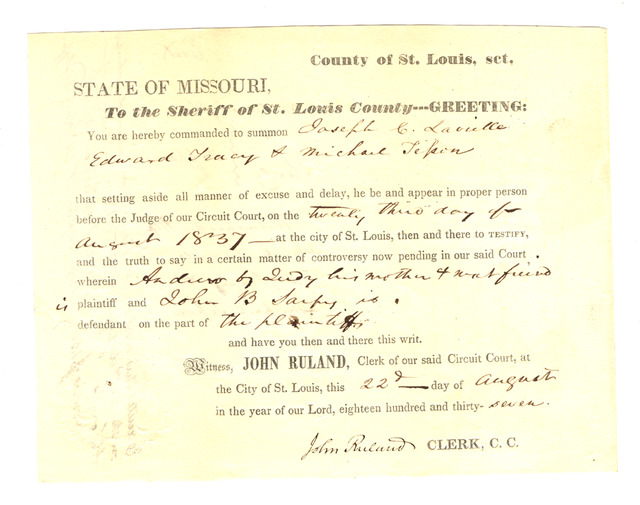 County of St. Louis, sct.
STATE OF MISSOURI,
To the Sheriff of St. Louis County---GREETING:
You are hereby commanded to summon Joseph C. Laveille
Edward Tracy & Michael Tesson
that setting aside all manner of excuse and delay, he be and appear in proper person
before the Judge of our Circuit Court, on the twenty third day of
August 1837 — at the city of St. Louis, then and there to TESTIFY,
and the truth to say in a certain matter of controversy now pending in our said Court.
wherein Andrew by Judy his mother & next friend
is plaintiff and John B Sarpy is.
defendant on the part of the plaintiff
and have you then and there this writ.
Witness, JOHN RULAND, Clerk of our said Circuit Court, at
the City of St. Louis, this 22d — day of August
in the year of our Lord, eighteen hundred and thirty-seven.
John Ruland CLERK, C. C.